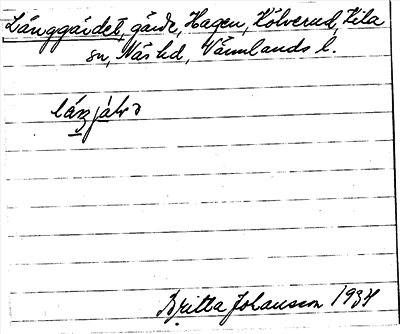 Långgärdet, gärde, Hagen, Kölverud, Kila
sn, Näs hd, Värmlands l.
Britta Johansson 1934